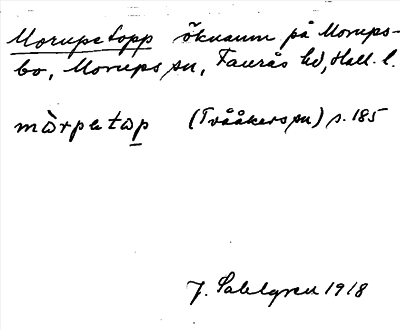 Morupetopp öknamn på Morups-
bo, Morups sn, Faurås hd, Hall. l.
mòrpetap (Tvååkers sn) s. 185
J. Sahlgren 1918